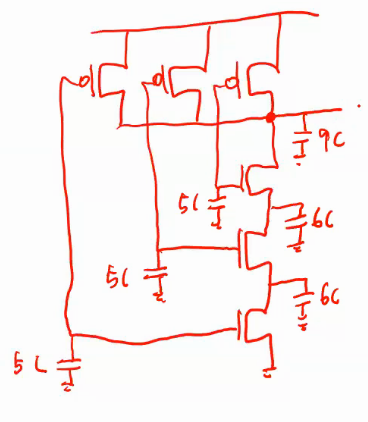 9C
5C
6C
5C
6C
5C